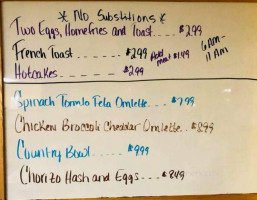 * No Substitions *
Two Eggs, Homefries and Toast.... $2.99
French Toast ------ $2.99 Add meat $1.49
Hotcakes ------ $2.99
6AM-
11 AM
Spinach Tomato Feta Omlette... $7.99
Chicken Broccoli Cheddar Omlette.. $8.99
Country Bowl ..... $9.99
Chorizo Hash and Eggs.... $8.49